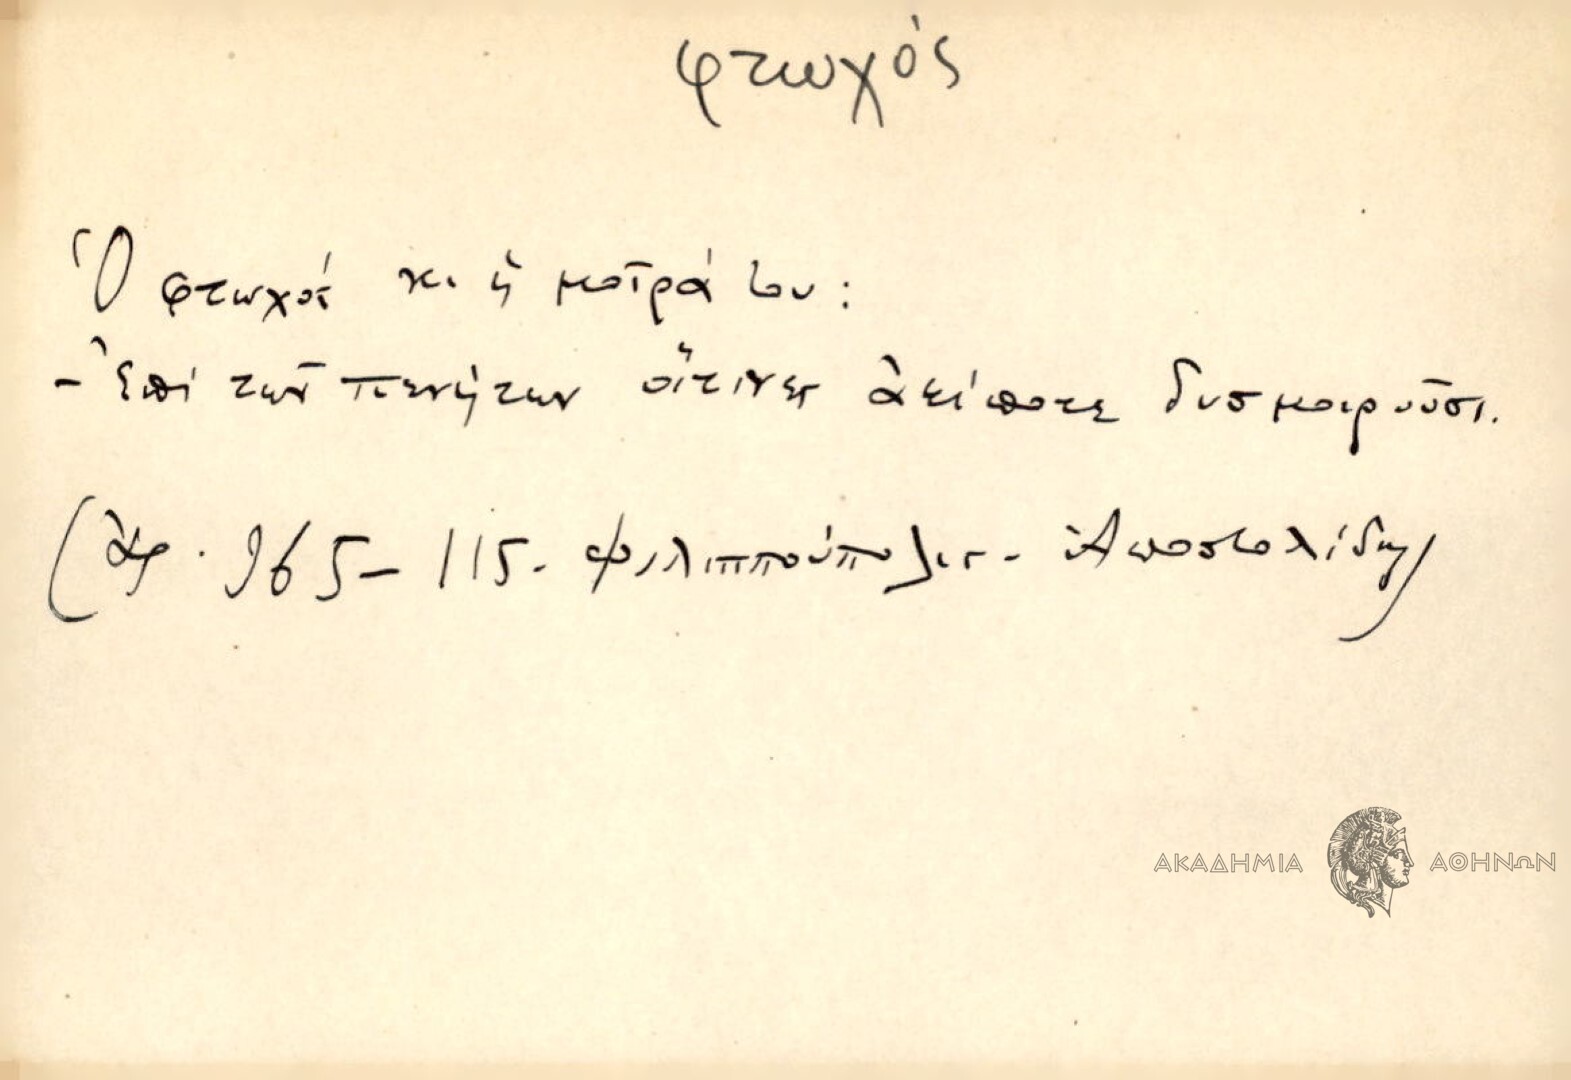 φτωχός
Ὁ φτωχός κι ἡ μοῖρά του:
- Ἐπί τῶν πενήτων οἵτινες ἀείποτε δυσμοιροῦσι.
(ἀρ. 965 - 115. Φιλιππούπολις - Ἀποστολίδης)
ΑΚΑΔΗΜΙΑ ΑΘΗΝΩΝ